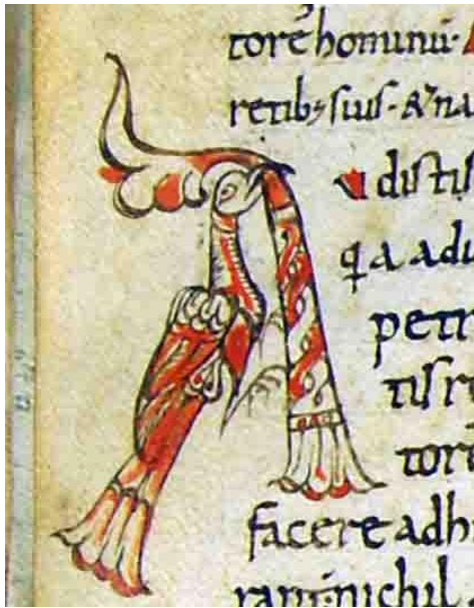 torē hominū·
retib; suis· & na
Audistis
qa adu
petr
tis r
tore
facere adh
rant· nichil